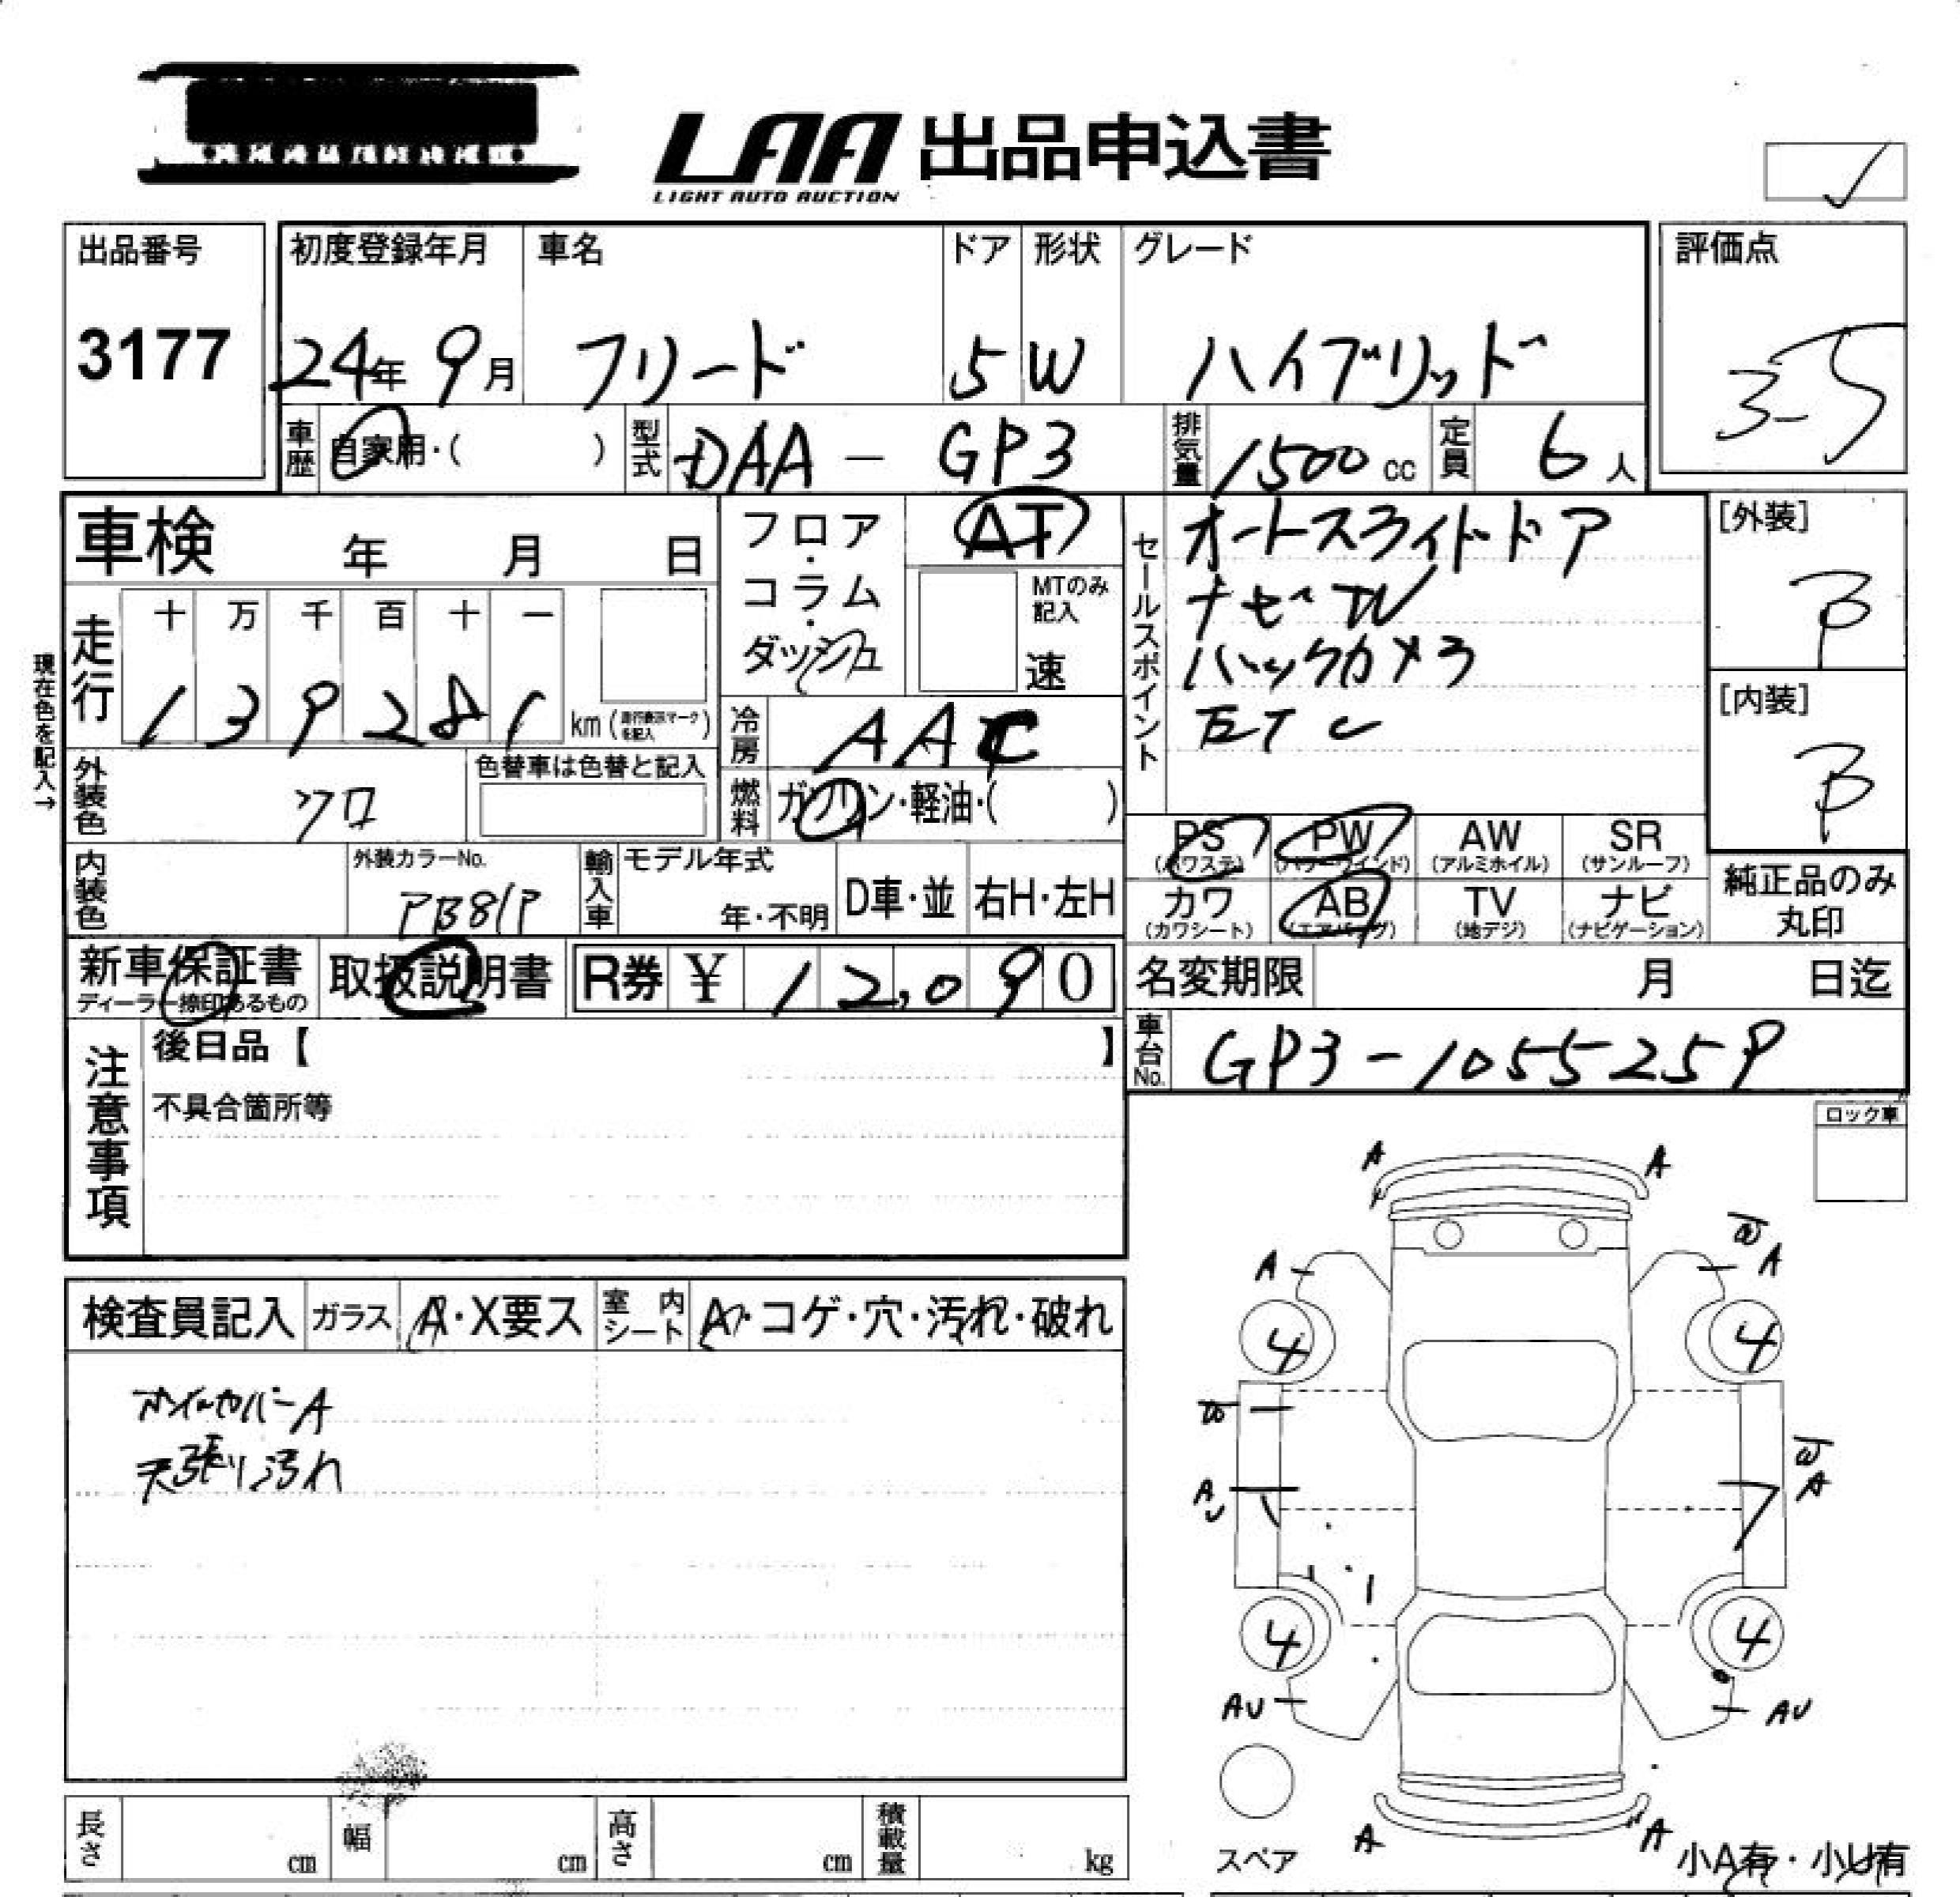 LAA 出品申込書
LIGHT AUTO AUCTION
出品番号
3177
初度登録年月
24年 9月
車名
フリード
ドア
5
形状
W
グレード
ハイブリッド
評価点
3-5
車歴
自家用・( )
型式
DAA - GP3
排気量
1500 cc
定員
6 人
車検 年 月 日
走行
十 万 千 百 十 一
1 3 9 2 8 1 km (走行表示マークを記入)
現在色を記入→
外装色
クロ
色替車は色替と記入
内装色
外装カラーNo.
PB81P
輸入車
モデル年式
年・不明
D車・並
右H・左H
フロア・コラム・ダッシュ
AT
MTのみ記入
速
冷房
AAC
燃料
ガソリン・軽油・( )
セールスポイント
オートスライドドア
ナビTV
バックカメラ
ETC
[外装]
B
[内装]
B
PS
(パワステ)
PW
(パワーウインド)
AW
(アルミホイル)
SR
(サンルーフ)
カワ
(カワシート)
AB
(エアバッグ)
TV
(地デジ)
ナビ
(ナビゲーション)
純正品のみ
丸印
新車保証書
ディーラー捺印あるもの
取扱説明書
R券 ¥ 12,090
名変期限 月 日迄
車台No.
GP3-1055259
注意事項
後日品【 】
不具合箇所等
ロック車
検査員記入
ガラス
A・X要ス
室内シート
A・コゲ・穴・汚れ・破れ
ホイールカバーA
天張り汚れ
A A
A
W A
4 4
W
W A
A U
4 4
AU
AU
A A
スペア
小A有・小U有
長さ cm
幅 cm
高さ cm
積載量 kg